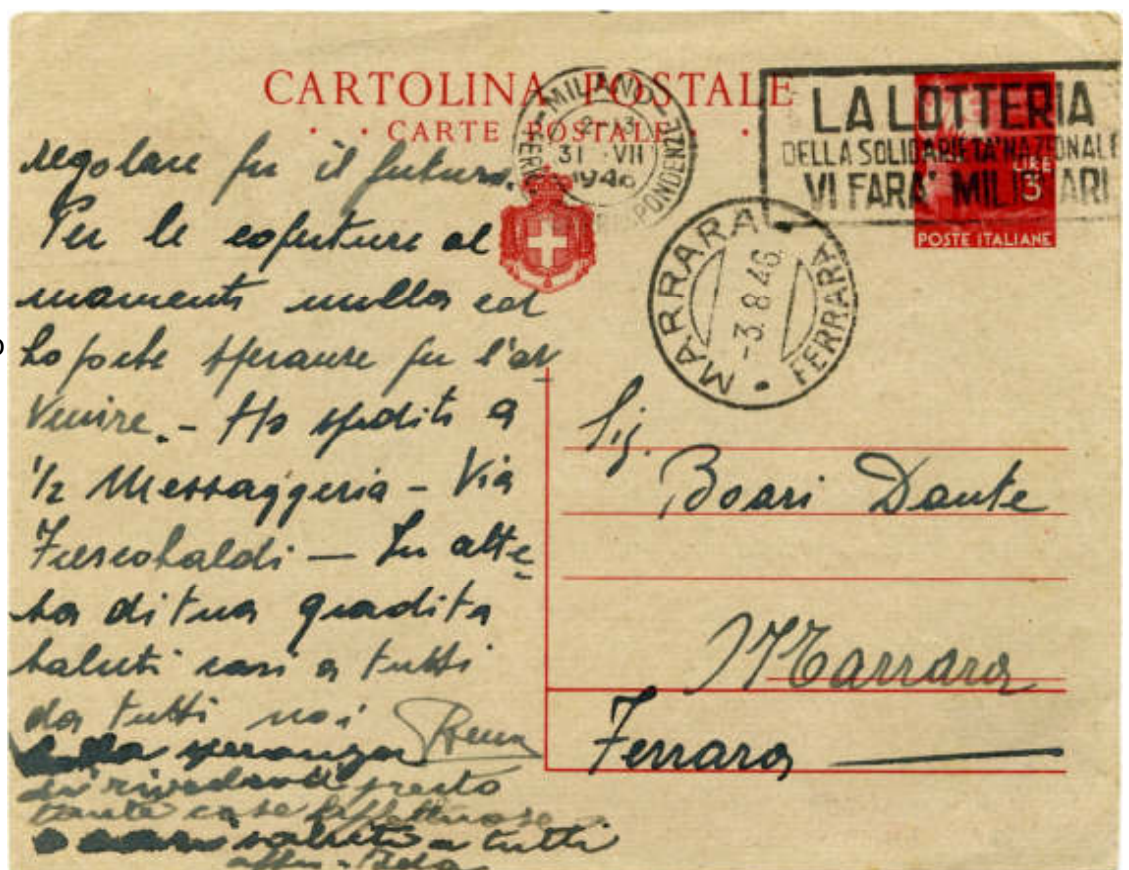 CARTOLINA POSTALE
CARTE POSTALE
MILANO
31 VII
1946
LA LOTTERIA
DELLA SOLIDARIETA' NAZIONALE
VI FARA' MILIONARI
LIRE
3
POSTE ITALIANE
MARRARA
-3.8.46.
FERRARA
regolare per il futuro.
Per le coperture al
momento nulla ed
ho poche speranze per l'av
venire. - Ho spedito a
1/2 Messaggeria - Via
Frescobaldi — In atte-
sa di tua gradita
saluti cari a tutti
da tutti noi
speranza
di rivedervi presto
tante cose affettuose
saluti a tutti
Sig.
Boari Dante
Marrara
Ferrara